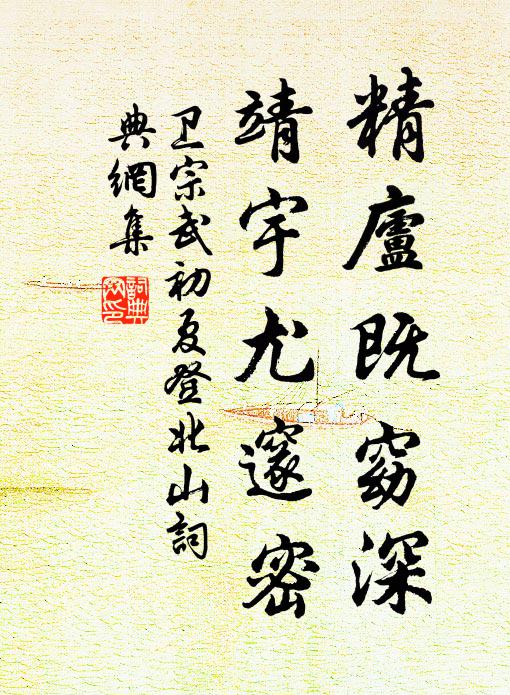 精廬既窈深
靖宇尤邃密
卫宗武初夏登北山詞
典網集
詞典